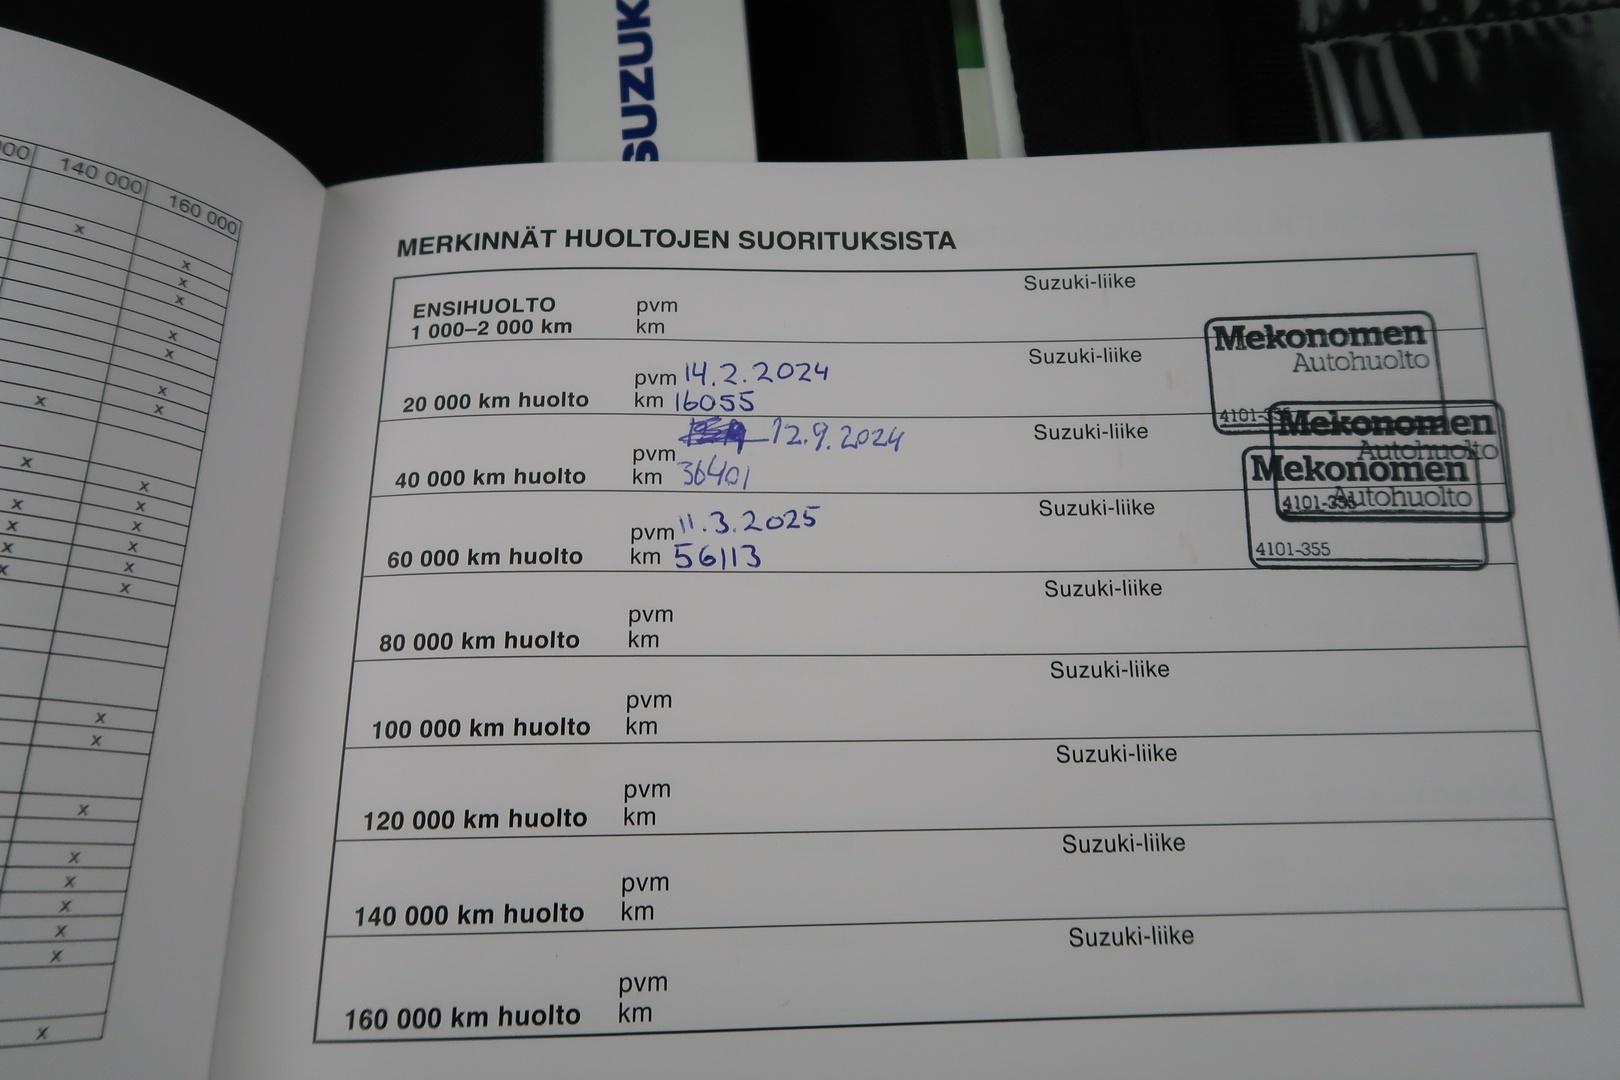 SUZUK
00 140 000 160 000
MERKINNÄT HUOLTOJEN SUORITUKSISTA
ENSIHUOLTO
1 000–2 000 km
pvm
km
Suzuki-liike
20 000 km huolto
pvm 14.2.2024
km 16055
Suzuki-liike
Mekonomen
Autohuolto
4101-355
40 000 km huolto
pvm 12.9.2024
km 36401
Suzuki-liike
Mekonomen
Autohuolto
4101-355
60 000 km huolto
pvm 11.3.2025
km 56113
Suzuki-liike
Mekonomen
Autohuolto
4101-355
80 000 km huolto
pvm
km
Suzuki-liike
100 000 km huolto
pvm
km
Suzuki-liike
120 000 km huolto
pvm
km
Suzuki-liike
140 000 km huolto
pvm
km
Suzuki-liike
160 000 km huolto
pvm
km
Suzuki-liike